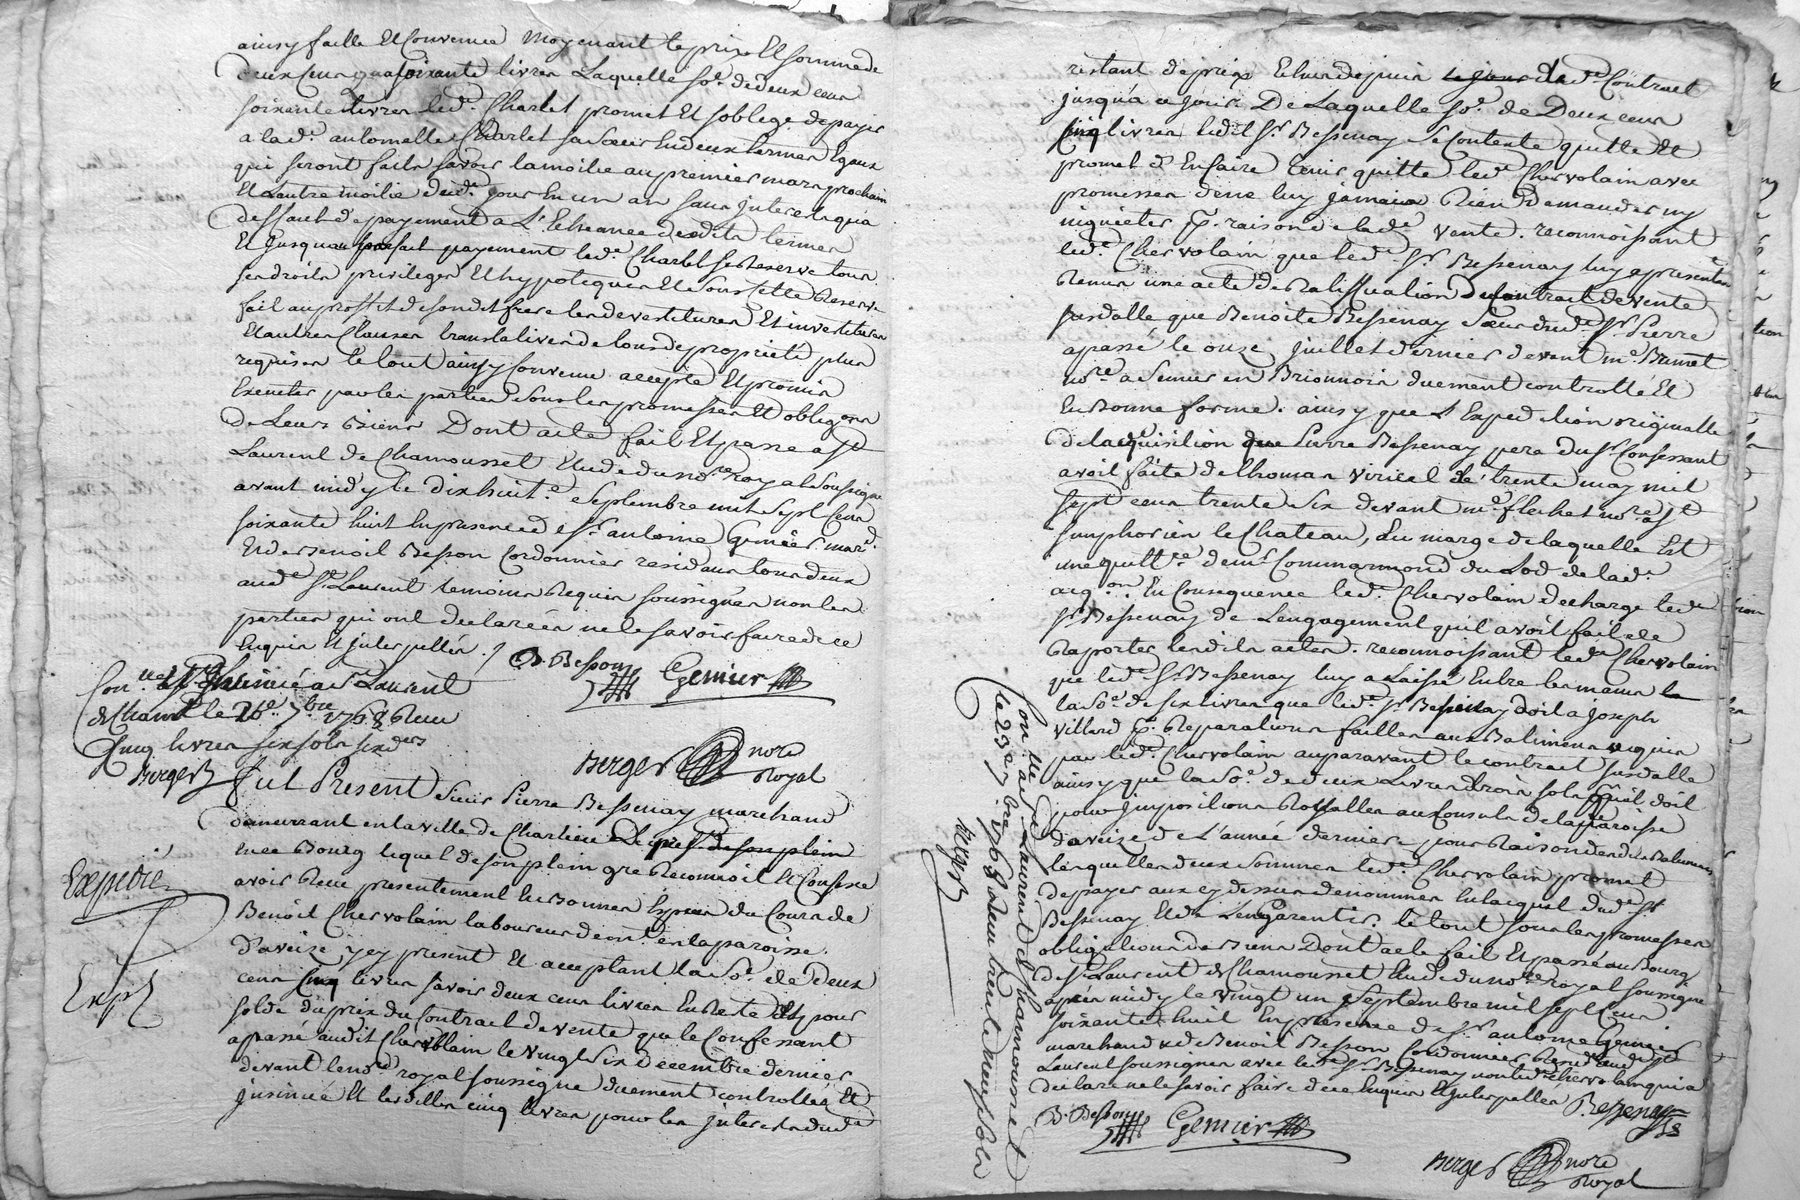 ainsy faitte Et Convenue Moyenant le prix Et somme de
Deux Cens soixante livres Laquelle so.e de deux cens
soixante livres led.t Charlet promet Et soblege de payer
a lad.e antoinette Charlet sa sœur En deux termes Egaux
qui seront faits savoir la moitié au premier mars prochain
Et Lautre moitié dud.t jour En un an sans Interets qu'a
deffault de payement a L'Echeance desdits termes
Et Jusqu'au parfait payement led.t Charlet se Reserve tous
ses droits privileges Et hypoteques Et sous cette Reserve
fait au proffit de sondit frere les devestitures Et investitures
Et autres Clauses translatives de tous de propriété plus
requises le tout ainsy Convenu accepté Et promis
Executer par les parties sous les promesses Et obligaons
De Leurs Biens Dont acte fait Et passé a St
Laurent de Chamousset Etude du no.re royal soussigné
avant midy le dix huit.e septembre mil sept cens
soixante huit En presence de s.r antoine Gemier mar.d
Et de Benoit Besson Cordonnier residans tous deux
aud.t St Laurent temoins Requis soussignés non les
parties qui ont declarées ne le savoir faire de ce
Enquis Et Interpellés ./.
B. Besson Gemier
Con.lle Et Insinué a St Laurent
de Cham.t le 26.e 7.bre 1768 Reçu
Cinq livres six sols six d.ers
Berger
Berger no.re
Royal
Fut Present Sieur Pierre Bessenay marchand
demeurrant en la ville de Charlieu
En ce Bourg lequel de son plein gré Reconnoit Et Confesse
avoir Reçu presentement En Bonnes Especes du Cours de
Benoit Chervolain laboureur dem.t en la paroisse
D'aveize y cy present Et acceptant la So.e de Deux
cens Cinq livres savoir deux cens livres En Reste Et pour
solde du prix du Contract de vente que le Confessant
a passé audit Chervolain le vingt six Decembre dernier
devant le no.re royal soussigné duement controllé Et
Insinué Et les dittes cinq livres pour les Interets dud.t
Expedié
Exp.é
restant de prix Echus depuis led.t Contract
jusqu'a ce jour. De Laquelle so.e de Deux cens
cinq livres led.t S.r Bessenay se Contente quitte Et
promet d'En faire tenir quitte led.t Chervolain avec
promesses de ne luy jamais Rien Demander ny
inquieter p.r raison de lad.e vente. reconnoissant
led.t Chervolain que led.t S.r Bessenay luy a presentem.t
Remis une acte de Ratiffication du Contract de vente
susdatté que Benoite Bessenay sœur dud.t S.r Pierre
a passé le onze juillet dernier devant m.e
no.re a Semur en Brionnois duement controllé Et
En Bonne forme. ainsy que L'Expedition originalle
de lacquisition que Pierre Bessenay pere du S.r Confessant
avoit faite de thomas Viricel le trente may mil
sept cens trente six devant m.e flechet no.re a St
simphorien le Chateau, En marge de laquelle Est
une quitt.ce de m.r Commarmond du Lod de lad.e
acq.on. En Consequence led.t Chervolain decharge led.t
S.r Bessenay de Lengagement qu'il avoit fait de
Raporter lesdits actes. reconnoissant led.t Chervolain
que led.t S.r Bessenay luy a Laissé Entre les mains
la So.e de six livres que led.t S.r Bessenay doit a joseph
Villard p.r Reparations faittes aux Batimens acquis
par led.t Chervolain auparavant le contract susdatté
ainsy que la So.e de deux Livres trois sols qu'il doit
pour Impositions Royalles au Consuls de la paroisse
d'aveize de L'année derniere pour Raison desdits Batimens
lesquelles deux sommes led.t Chervolain promet
de payer aux cy dessus denommés En lacquit dud.t S.r
Bessenay Et de Len Garentir. le tout sous les promesses
obligations de Biens Dont acte fait Et passé au Bourg
de St Laurent de Chamousset Etude du no.re royal soussigné
apres midy le vingt un septembre mil sept cens
soixante huit En presence de s.r antoine Gemier
marchand Et de Benoit Besson Cordonnier Residans aud.t St
Laurent soussignés avec led.t S.r Bessenay non led.t Chervolain qui a
declaré ne le savoir faire de ce Enquis Et Interpellé P. Bessenay
B. Besson Gemier
Berger no.re
Royal
Con.lle a St Laurent de Chamousset
le 23 7.bre 1768 Reçu trente deux sols
Berger